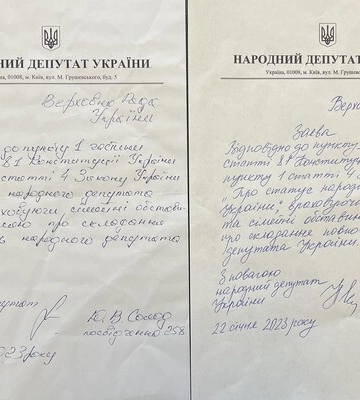 НИЙ ДЕПУТАТ УКРАЇНИ
Україна, 01008, м. Київ, вул. М. Грушевського, буд. 5
Верховна Рада
України
до пункту 1 частини
81 Конституції України
статті 4 Закону України
народного депутата
сімейні обстави-
про складання
народного депутата
Ю.В. Солод
посвідчення 258
2023 року
НАРОДНИЙ ДЕПУТАТ
Україна, 01008, м. Київ, вул. М. Гру
Верхо
Заява
Відповідно до пункту
статті 81 Конституції
пункту 1 статті 4
"Про статус народ
України", враховуючи
та сімейні обставин
про складання повно
депутата України
З повагою
народний депутат
України
22 січня 2023 року